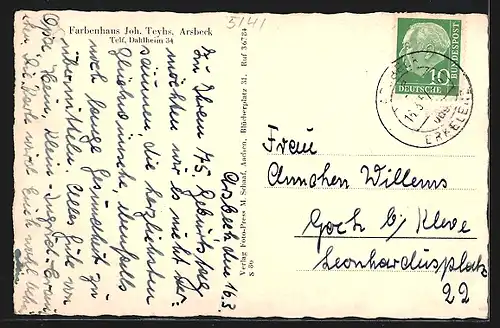 5141
Farbenhaus Joh. Teyhs, Arsbeck
Telf. Dahlheim 34
Verlag Foto-Press M. Schaaf, Aachen, Blücherplatz 31, Ruf 36724
S 80
Arsbeck, den 16.3.
Zu Ihrem 75. Geburtstag
möchten wir es nicht ver-
säumen die herzlichsten
Glückwünsche, ebenfalls
noch lange Gesundheit zu
übermitteln. Alles Gute
Opa, Hein,
Die Karte wird Euch wohl
Frau
Annchen Willems
Goch b/ Kleve
Leonhardusplatz
22
DEUTSCHE BUNDESPOST
10
ERKELENZ